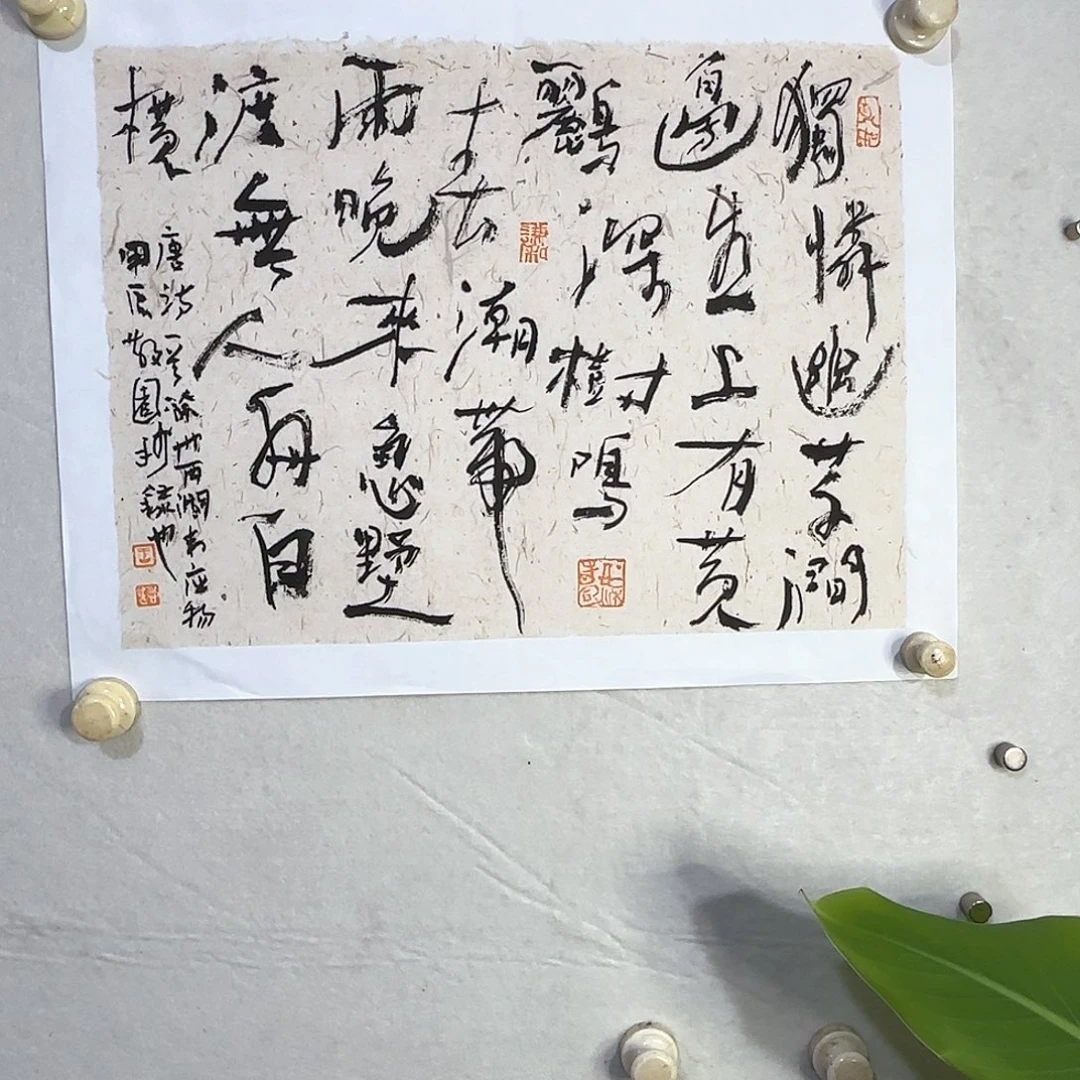 獨憐幽草澗
邊生上有黃
鸝深樹鳴
春潮帶
雨晚來急野
渡無人舟自
橫
唐詩一首滁州西澗韋應物
甲辰敬園抄錄也